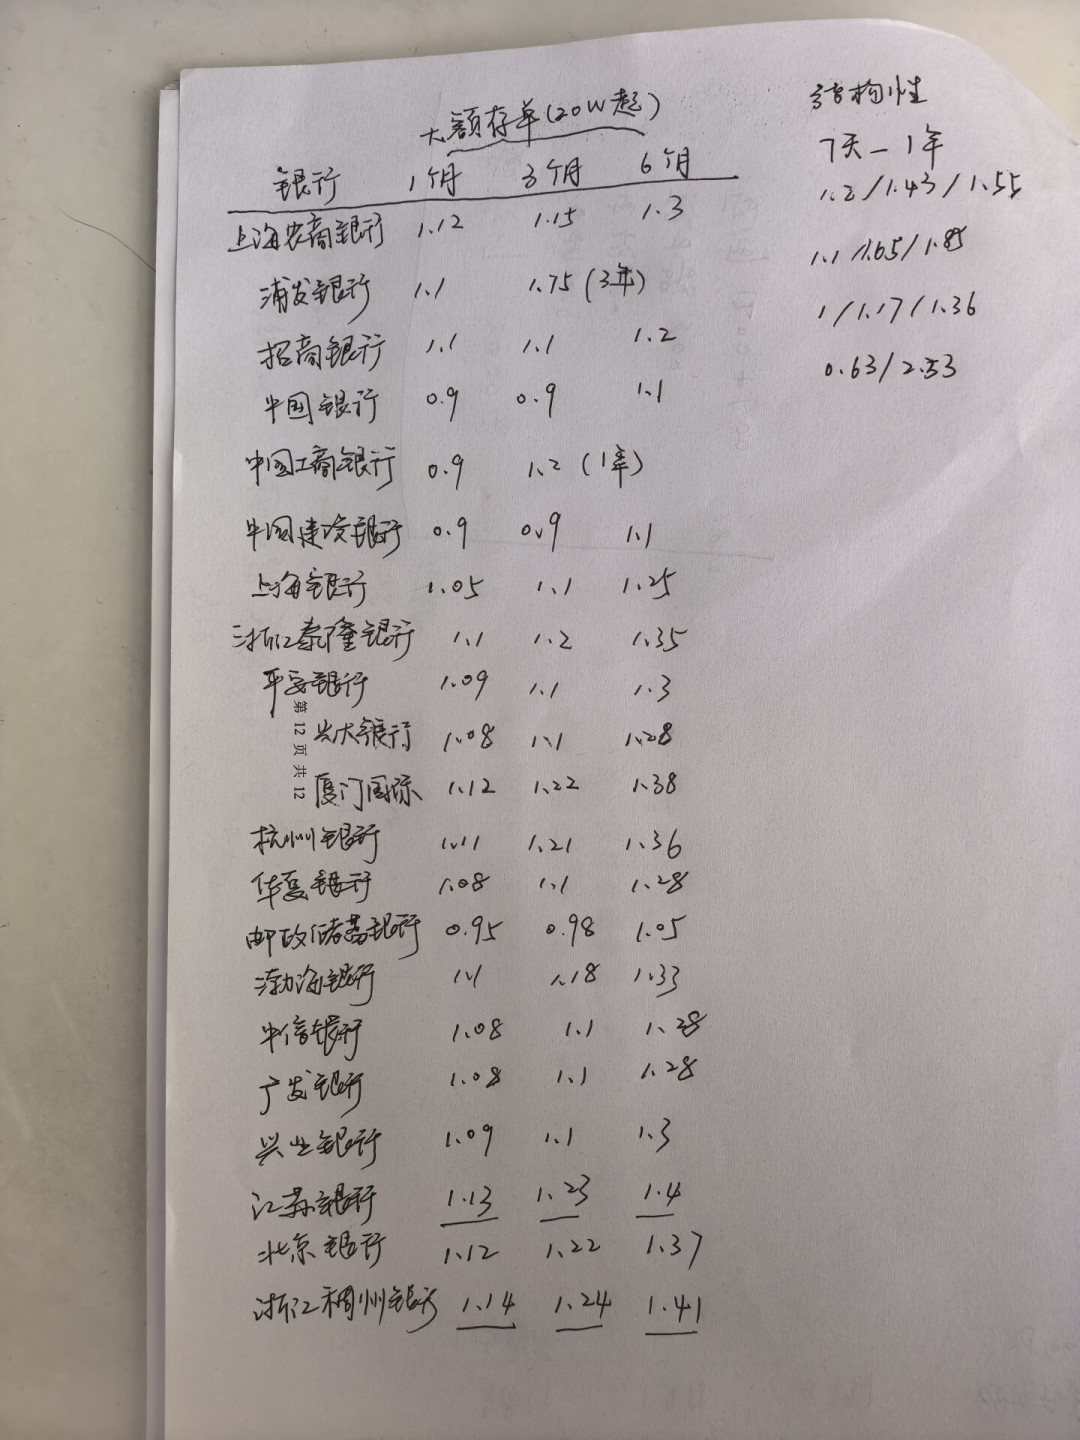 大额存单(20W起)
结构性
7天—1年
银行 1个月 3个月 6个月
上海农商银行 1.12 1.15 1.3 1.2/1.43/1.55
浦发银行 1.1 1.75(3年) 1.1/1.65/1.85
招商银行 1.1 1.1 1.2 1/1.17/1.36
中国银行 0.9 0.9 1.1 0.63/2.53
中国工商银行 0.9 1.2(1年)
中国建设银行 0.9 0.9 1.1
上海银行 1.05 1.1 1.25
浙江泰隆银行 1.1 1.2 1.35
平安银行 1.09 1.1 1.3
光大银行 1.08 1.1 1.28
厦门国际 1.12 1.22 1.38
第 12 页 共 12
杭州银行 1.11 1.21 1.36
华夏银行 1.08 1.1 1.28
邮政储蓄银行 0.95 0.98 1.05
渤海银行 1.1 1.18 1.33
中信银行 1.08 1.1 1.28
广发银行 1.08 1.1 1.28
兴业银行 1.09 1.1 1.3
江苏银行 1.13 1.23 1.4
北京银行 1.12 1.22 1.37
浙江稠州银行 1.14 1.24 1.41